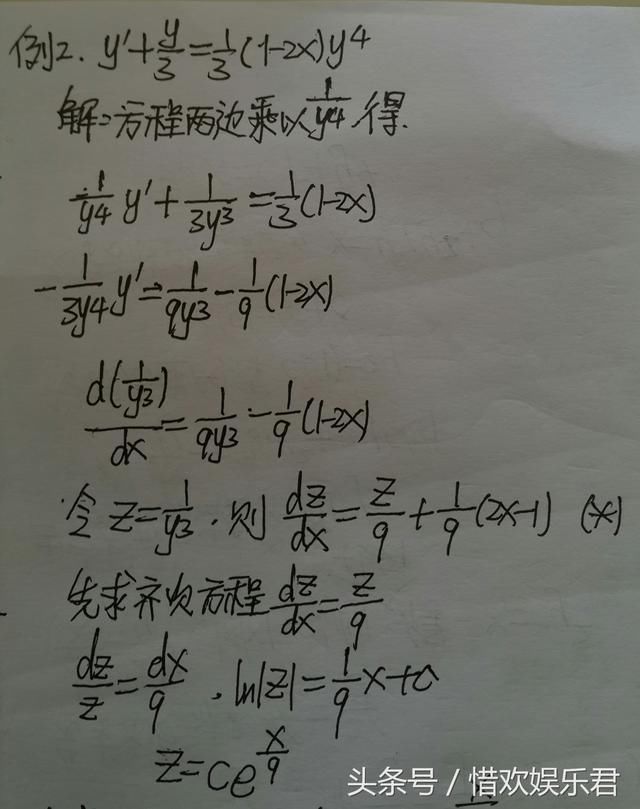 例2. y'+y/3=1/3(1-2x)y⁴
解:方程两边乘以1/y⁴,得.
1/y⁴ y'+1/3y³=1/3(1-2x)
-1/3y⁴ y'=1/9y³-1/9(1-2x)
d(1/y³)/dx=1/9y³-1/9(1-2x)
令z=1/y³,则dz/dx=z/9+1/9(2x-1) (*)
先求齐次方程dz/dx=z/9
dz/z=dx/9,ln|z|=1/9x+c
z=ce^(x/9)
头条号 / 惜欢娱乐君